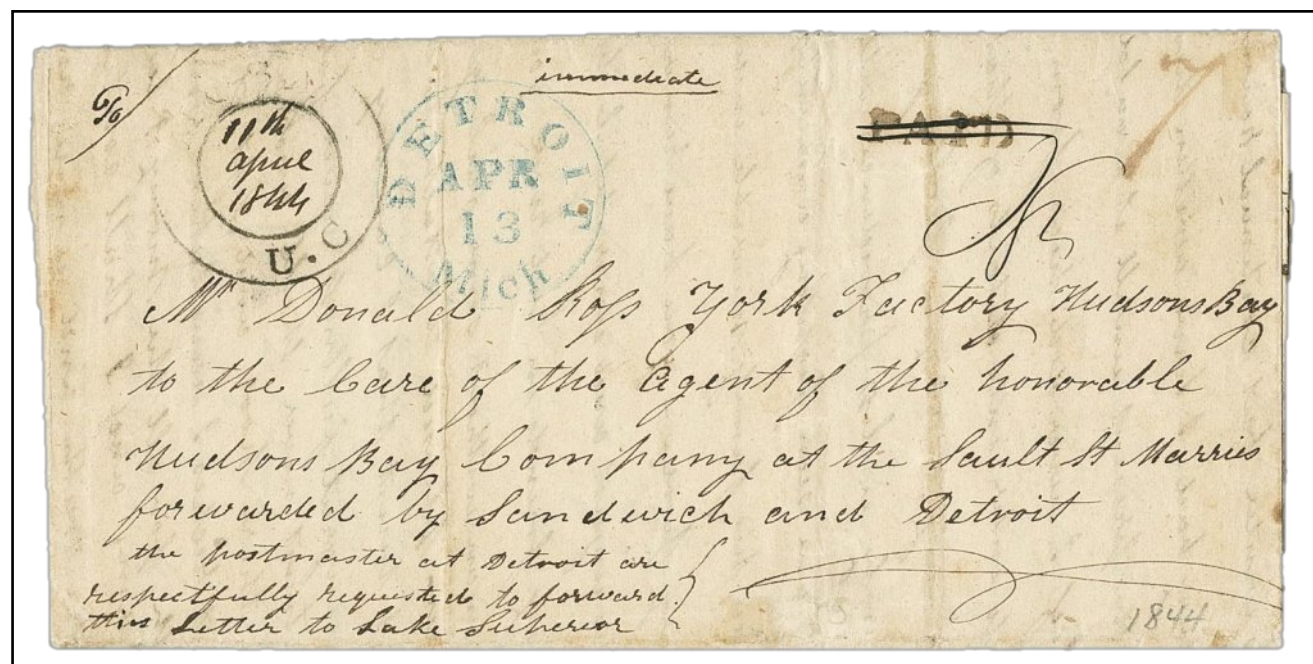 immediate
To/
11th
april
1844
U.C
DETROIT
APR
13
Mich
PAID
Mr Donald Ross York Factory Hudsons Bay
to the Care of the Agent of the honorable
Hudsons Bay Company at the Sault St Marries
forwarded by Sandwich and Detroit
the postmaster at Detroit are
respectfully requested to forward
this Letter to Lake Superior
1844